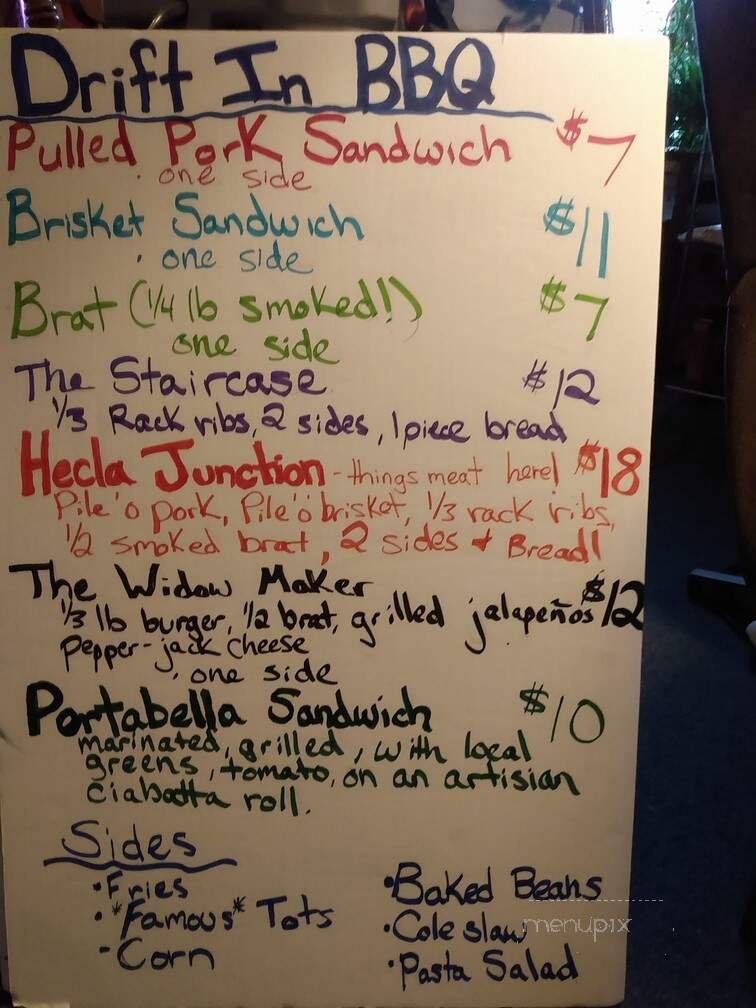 Drift In BBQ
Pulled Pork Sandwich $7
· one side
Brisket Sandwich $11
· one side
Brat (1/4 lb smoked!) $7
one side
The Staircase $12
1/3 Rack ribs, 2 sides, 1 piece bread
Hecla Junction - things meat here! $18
Pile 'o pork, Pile 'o brisket, 1/3 rack ribs,
1/2 smoked brat, 2 sides + Bread!
The Widow Maker $12
1/3 lb burger, 1/2 brat, grilled jalapeños
pepper-jack cheese
· one side
Portabella Sandwich $10
marinated, grilled, with local
greens, tomato, on an artisian
ciabatta roll.
Sides
· Fries
· *Famous* Tots
- Corn
· Baked Beans
· Cole slaw
· Pasta Salad
menupix